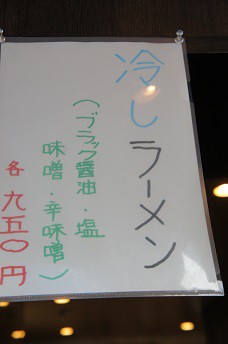 冷しラーメン
(ブラック醤油・塩
味噌・辛味噌)
各九五〇円